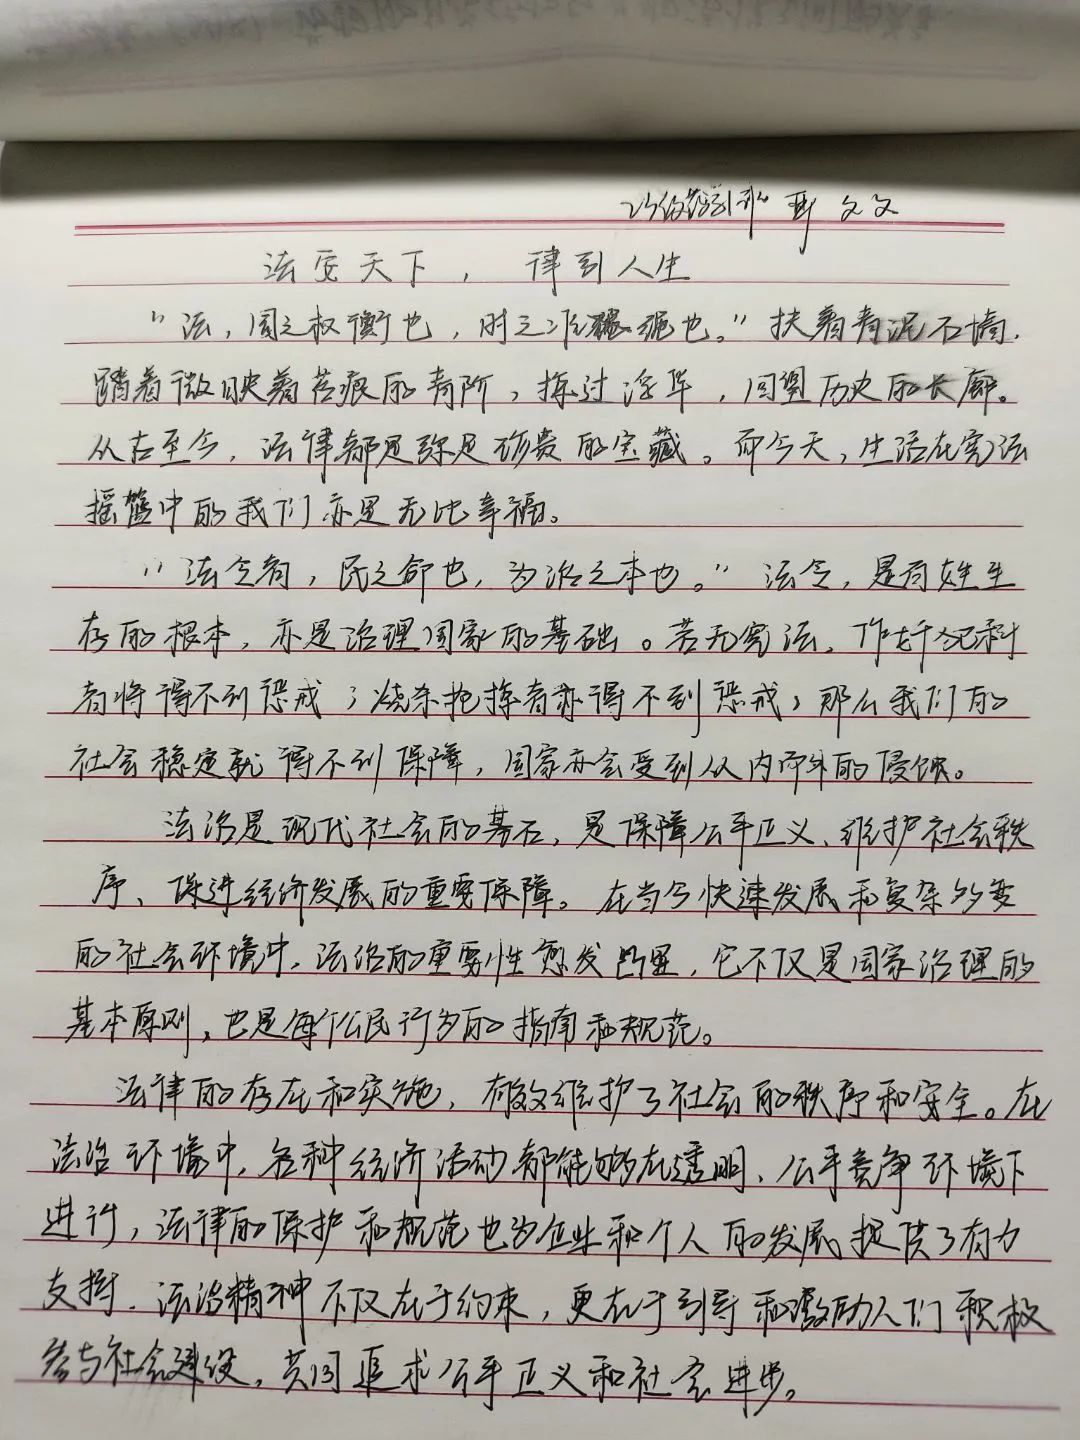 文文
法安天下，律到人生
"法，国之权衡也，时之准绳也。"扶着青泥石墙，
踏着微映着苔痕的青阶，拣过浮华，回望历史的长廊。
从古至今，法律都是弥足珍贵的宝藏。而今天，生活在宪法
摇篮中的我们亦是无比幸福。
"法令者，民之命也，为治之本也。"法令，是百姓生
存的根本，亦是治理国家的基础。若无宪法，作奸犯科
者将得不到惩戒；烧杀抢掠者亦得不到惩戒，那么我们的
社会稳定就得不到保障，国家亦会受到从内而外的侵蚀。
法治是现代社会的基石，是保障公平正义、维护社会秩
序、促进经济发展的重要保障。在当今快速发展和复杂多变
的社会环境中，法治的重要性愈发凸显，它不仅是国家治理的
基本原则，也是每个公民行为的指南和规范。
法律的存在和实施，有效维护了社会的秩序和安全。在
法治环境中，各种经济活动都能够在透明、公平竞争环境下
进行，法律的保护和规范也为企业和个人的发展提供了有力
支撑。法治精神不仅在于约束，更在于引导和激励人们积极
参与社会建设，共同追求公平正义和社会进步。